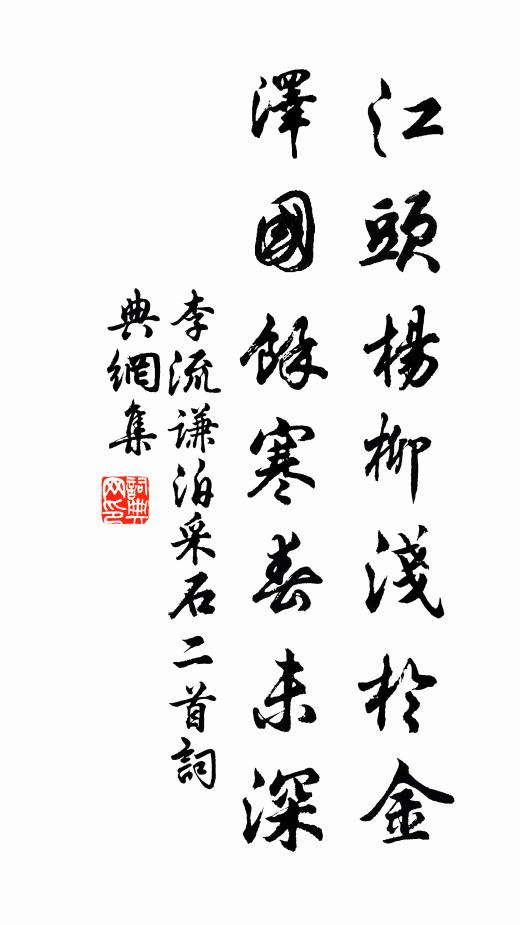 江頭楊柳淺於金
澤國餘寒春未深
李流謙泊采石二首詞
典網集
詞典
网印